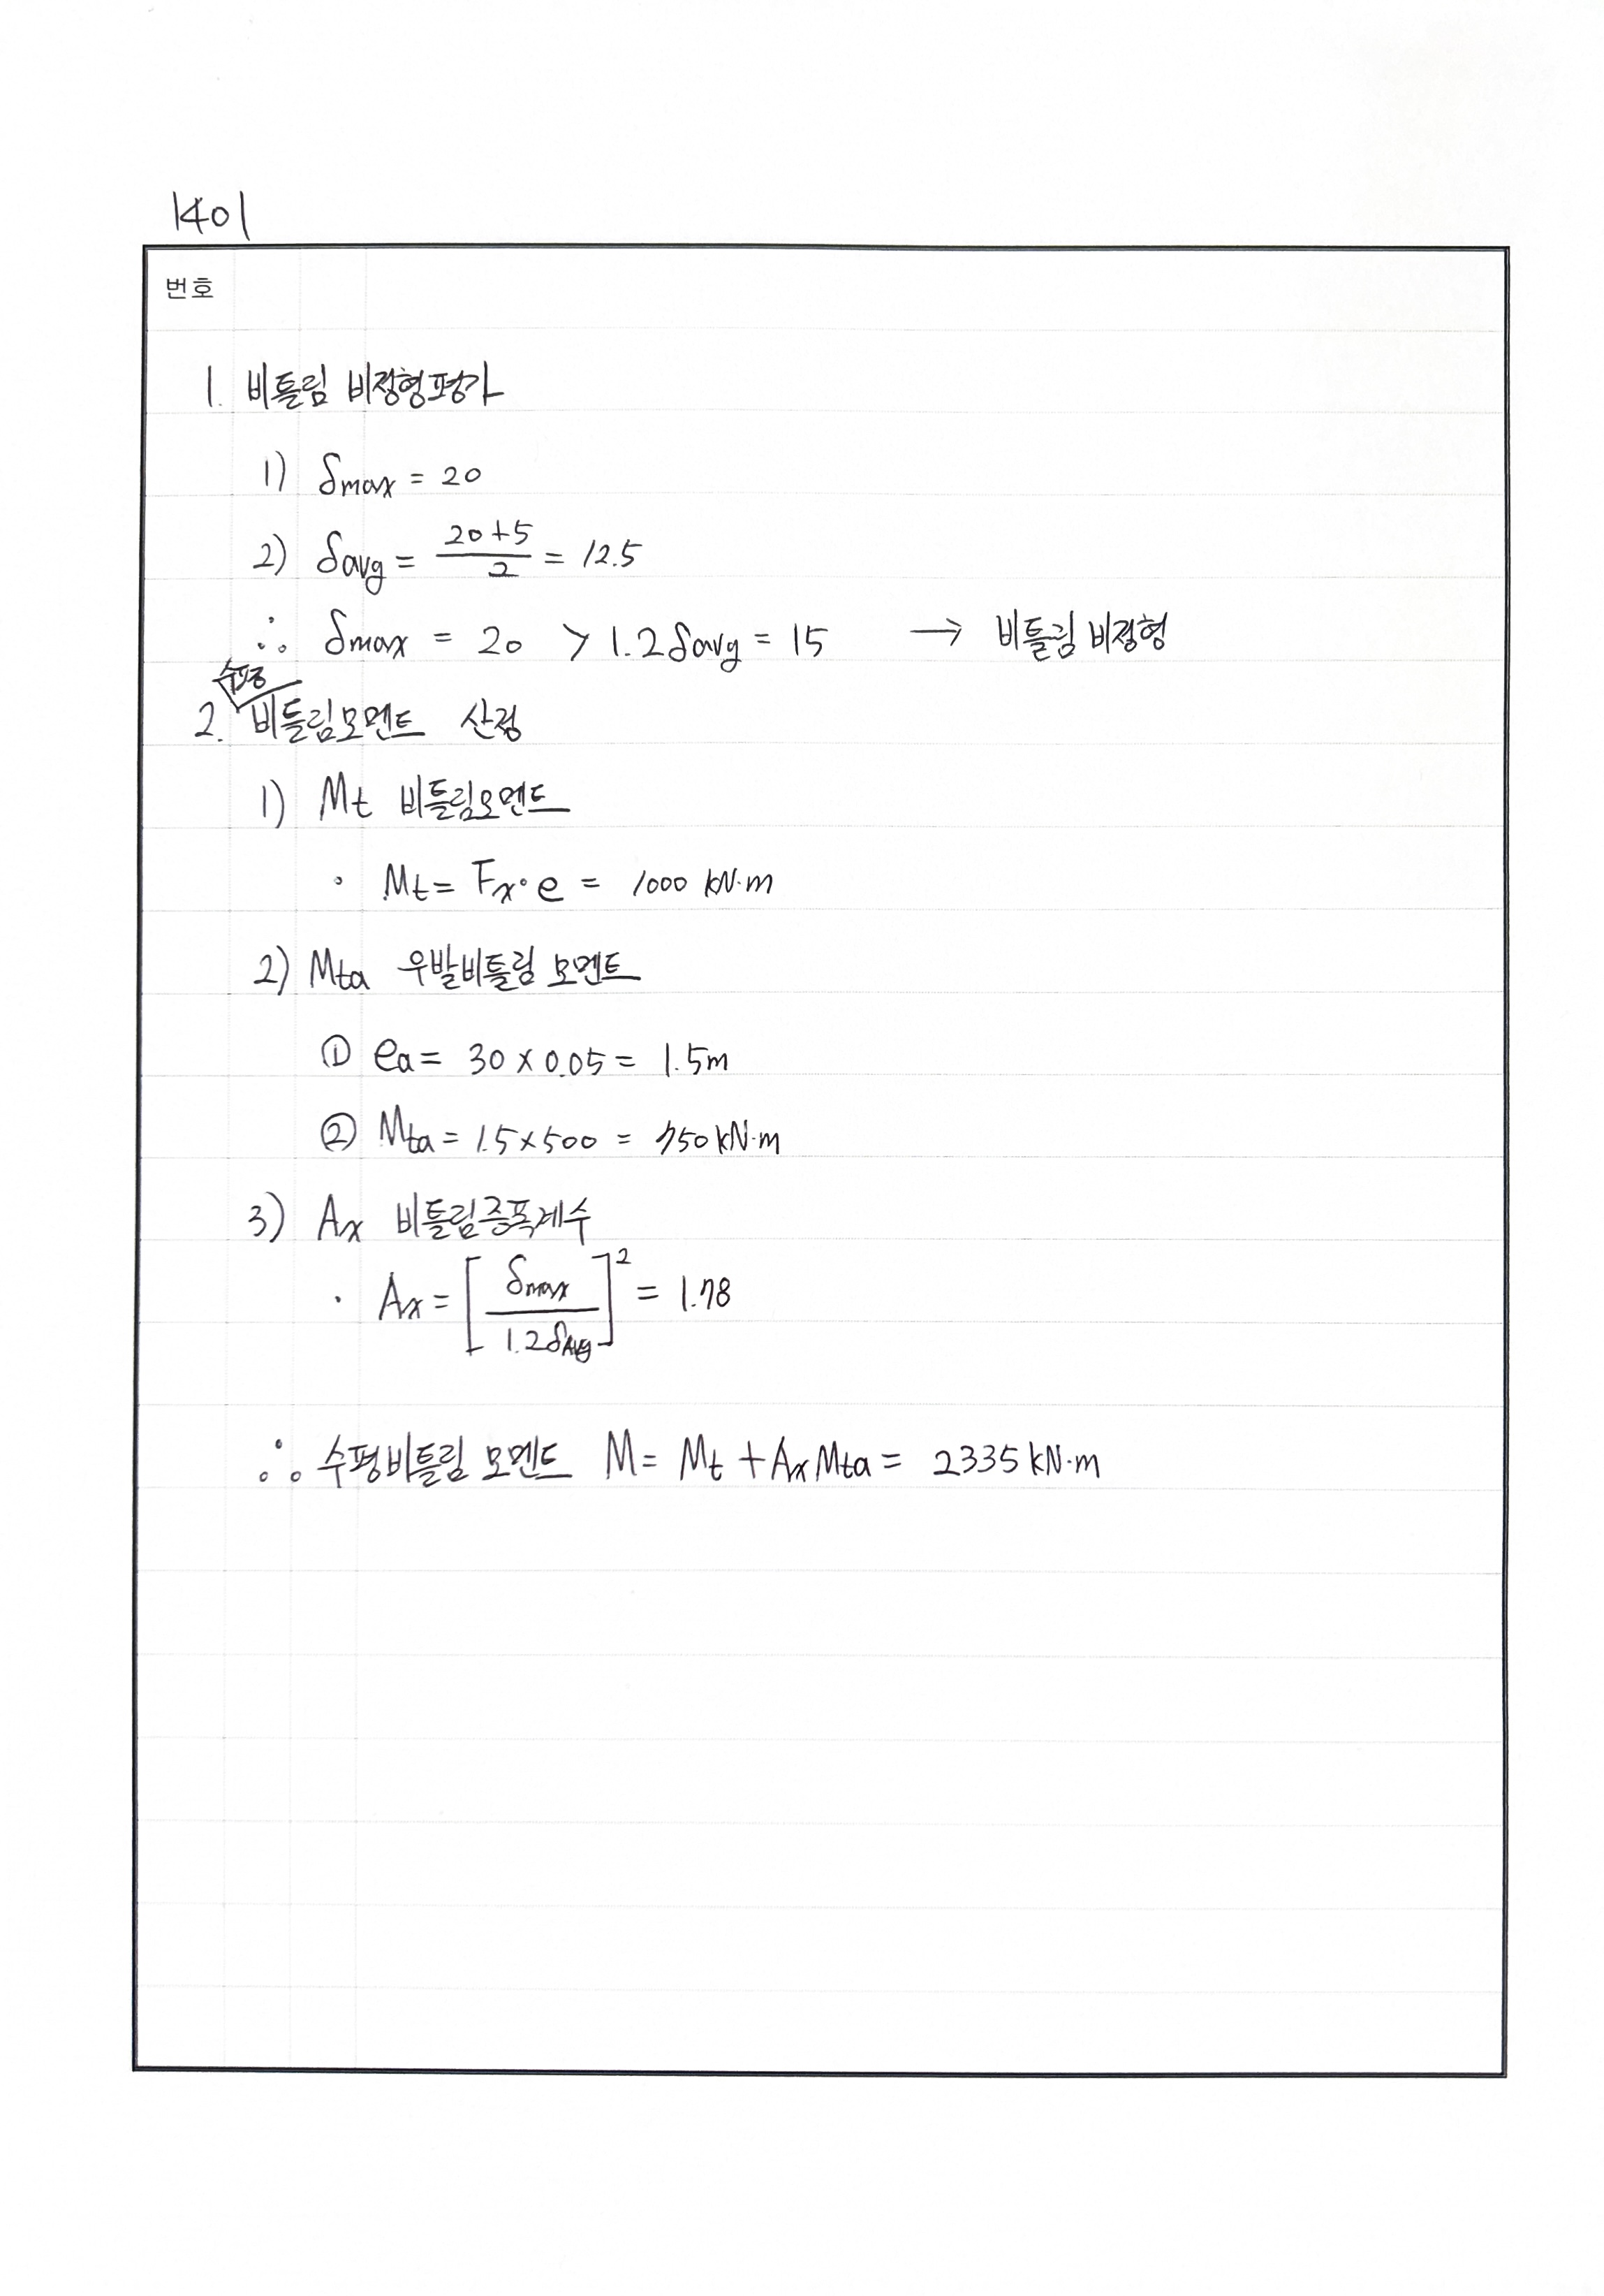 1401
번호
1. 비틀림 비정형평가
1) δmax = 20
2) δavg = (20+5)/2 = 12.5
∴ δmax = 20 > 1.2δavg = 15 → 비틀림 비정형
2. 수평비틀림모멘트 산정
1) Mt 비틀림모멘트
· Mt = Fx·e = 1000 kN·m
2) Mta 우발비틀림 모멘트
① ea = 30 × 0.05 = 1.5m
② Mta = 1.5×500 = 750 kN·m
3) Ax 비틀림증폭계수
· Ax = [δmax / 1.2δavg]² = 1.78
∴ 수평비틀림 모멘트 M = Mt + AxMta = 2335 kN·m